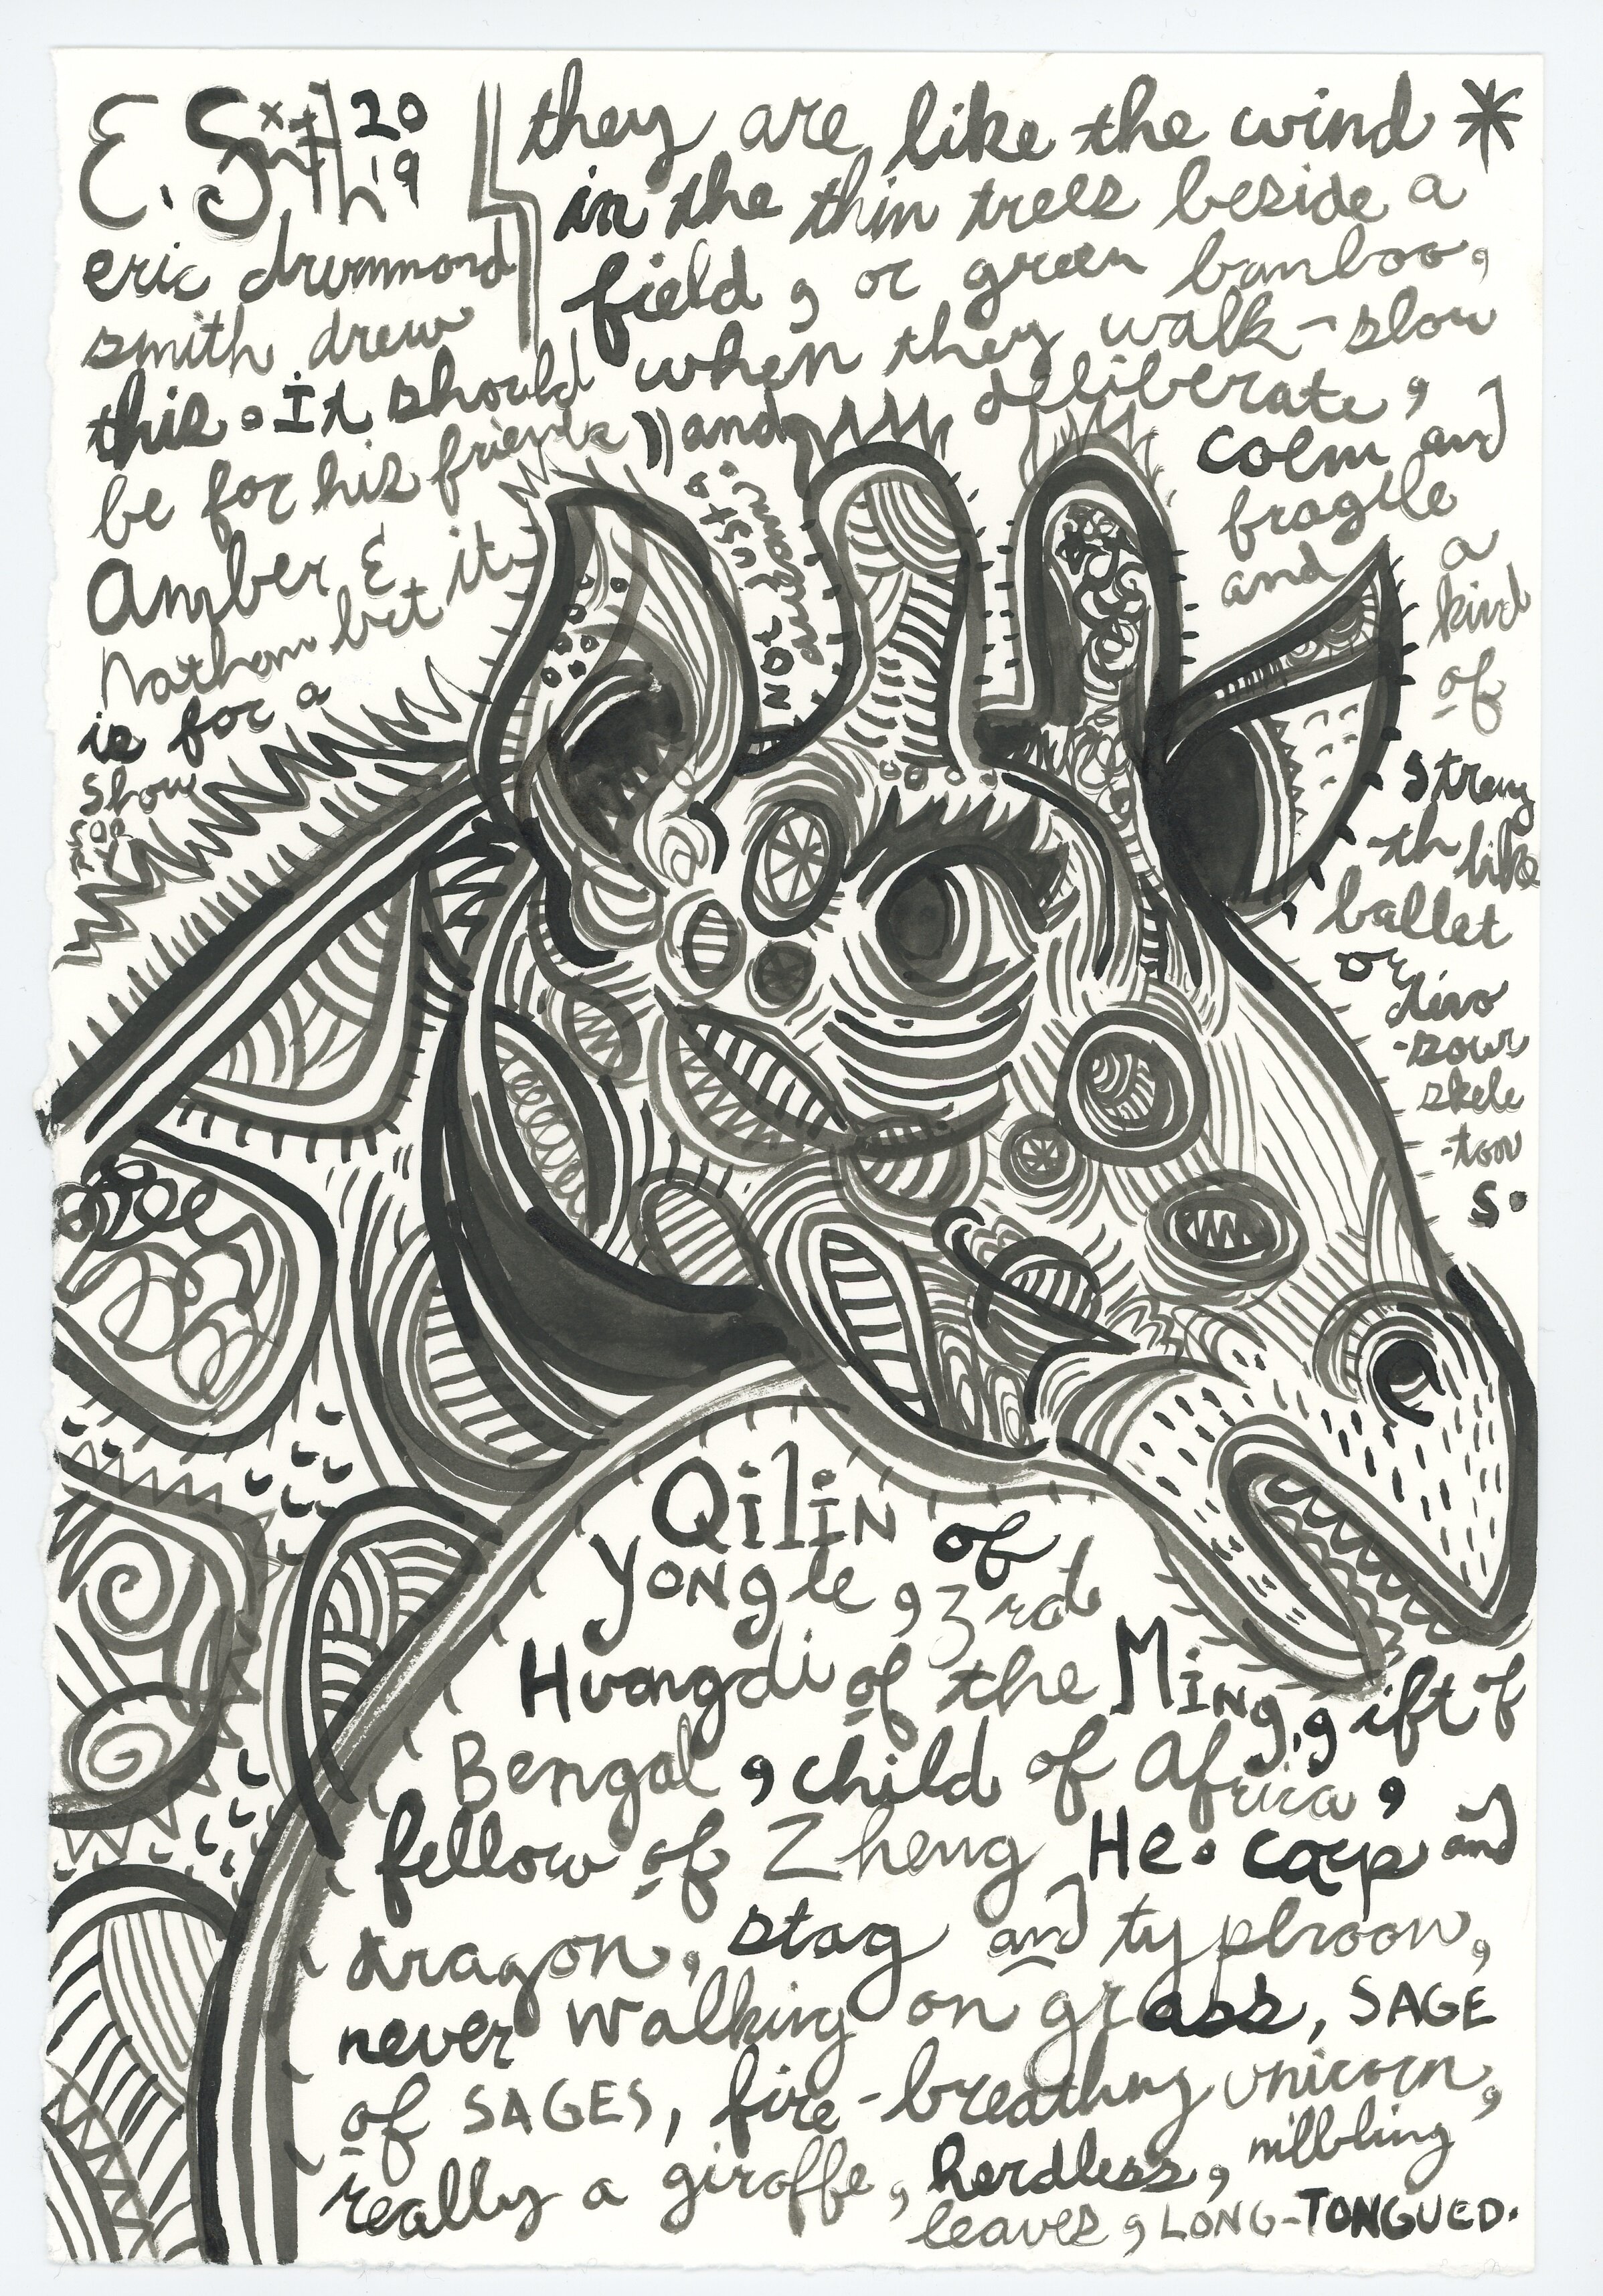 E. Smith 2019
eric drummond
smith drew
this. It should
be for his friends
Amber &
Nathan but it
is for a
show
and
not just a
they are like the wind *
in the thin trees beside a
field, or green bamboo,
when they walk - slow
deliberate,
calm and
fragile
and a
kind
of
streng
th like
ballet
or
dino
-saur
skele
-ton
s.
Qilin of
Yongle, 3rd
Huangdi of the Ming, gift of
Bengal, child of Africa,
fellow of Zheng He. carp and
dragon, stag and typhoon,
never walking on grass, SAGE
of SAGES, fire-breathing unicorn,
really a giraffe, herdless, nibbling
leaves, LONG-TONGUED.